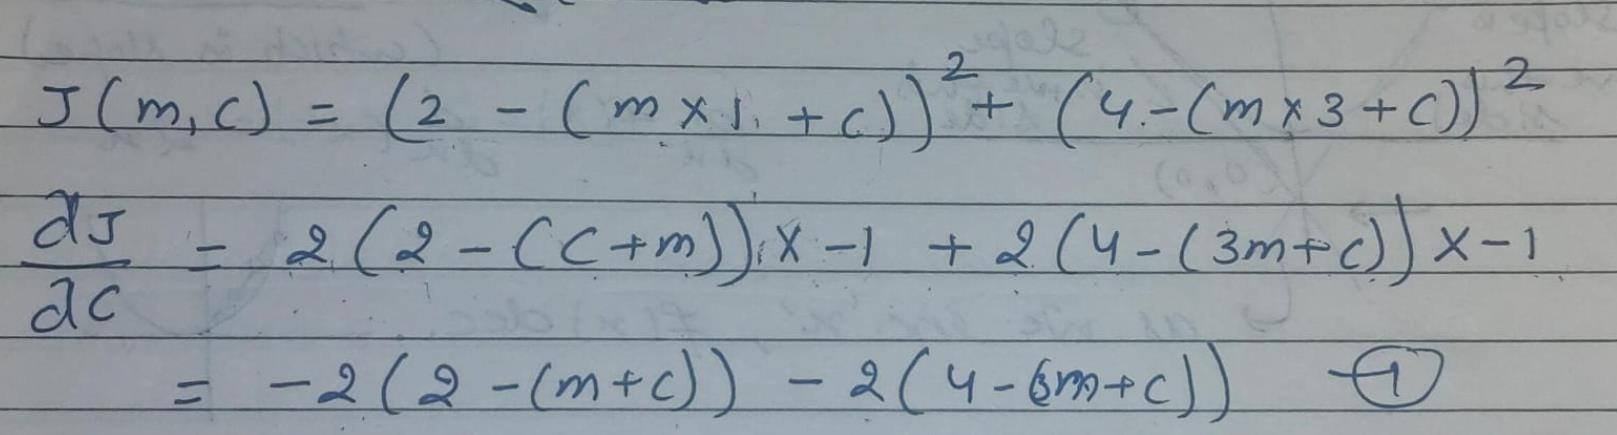 J(m,c) = (2 - (m×1 + c))² + (4-(m×3+c))²
dJ/dc = 2(2-(c+m))×-1 + 2(4-(3m+c))×-1
= -2(2-(m+c)) - 2(4-(3m+c)) ①